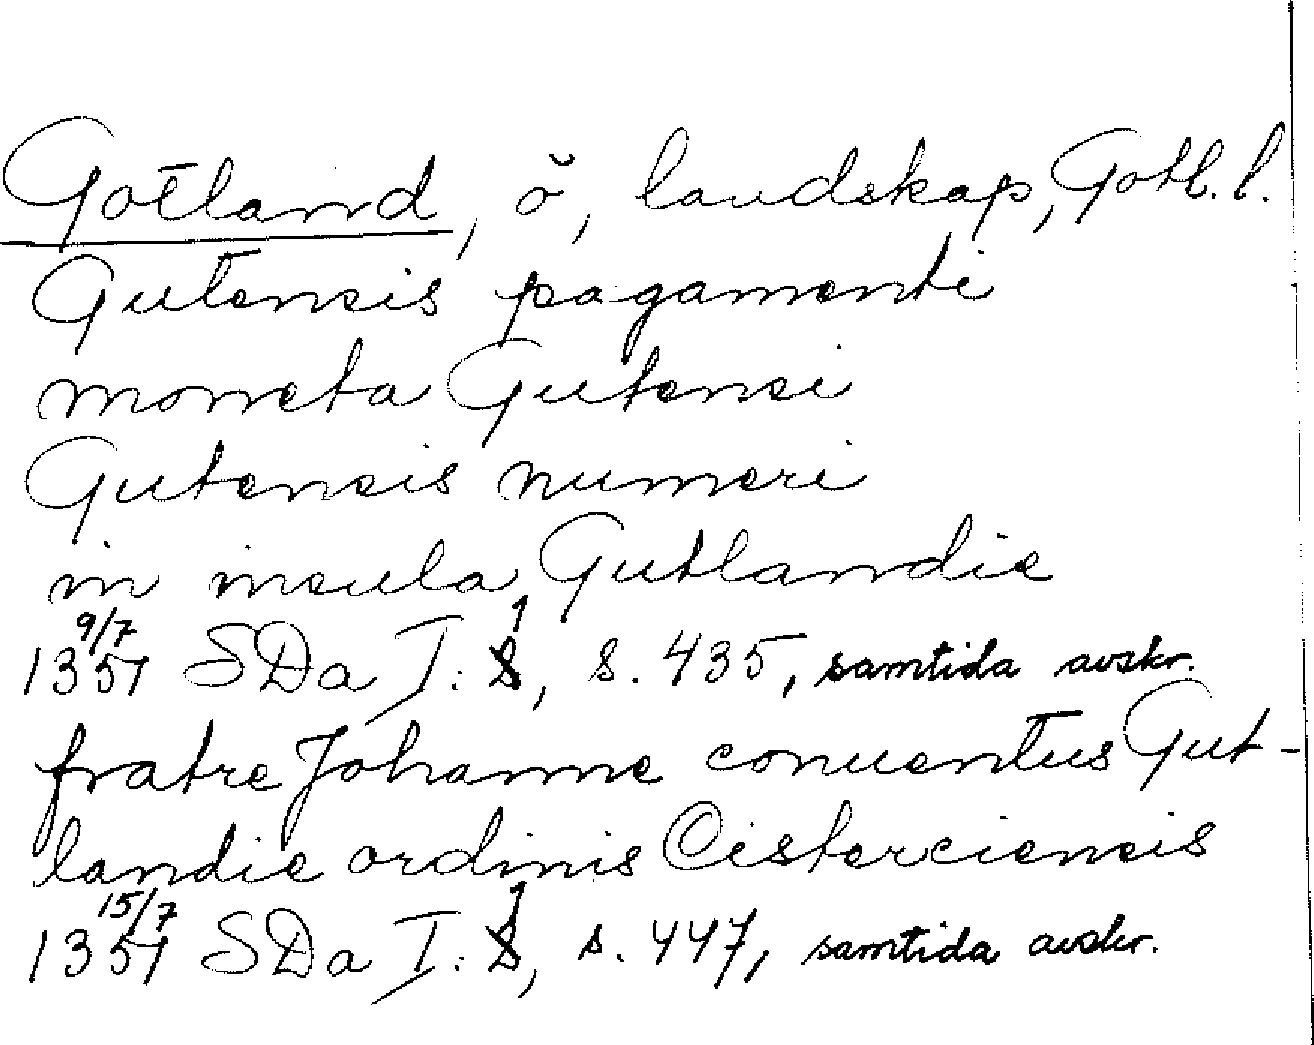 Gotland, ö, landskap, Gotl. l.
Gutensis pagamenti
moneta Gutensi
Gutensis numeri
in insula Gutlandie
9/7
1351 SDa I: 1, s. 435, samtida avskr.
fratre Johanne conuentus Gut-
landie ordinis Cisterciensis
15/7
1351 SDa I: 1, s. 447, samtida avskr.